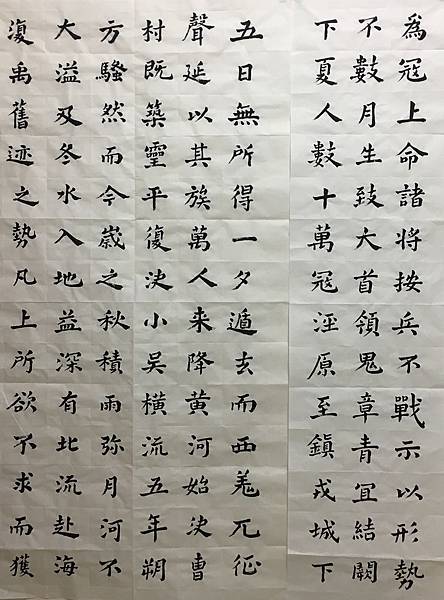 為冦上命諸將按兵不戰示以形勢
不數月生致大首領鬼章青宜結闕
下夏人數十萬冦涇原至鎮戎城下
五日無所得一夕遁去而西羌兀征
聲延以其族萬人来降黃河始決曹
村既築靈平復決小吳橫流五年朔
方騷然而今歲之秋積雨弥月河不
大溢及冬水入地益深有北流赴海
復禹舊迹之勢凡上所欲不求而獲